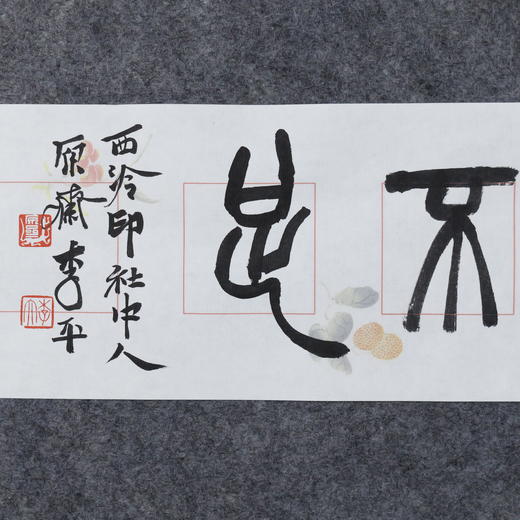 不足
西泠印社中人
原齋李平